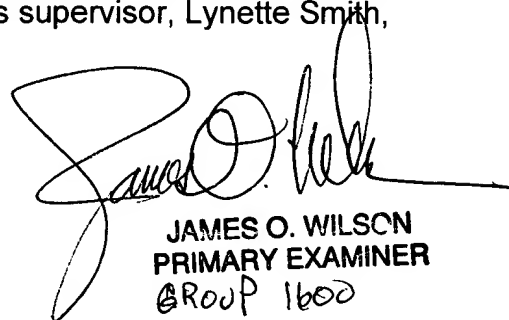 s supervisor, Lynette Smith,
James O. Wilson
JAMES O. WILSON
PRIMARY EXAMINER
GROUP 1600